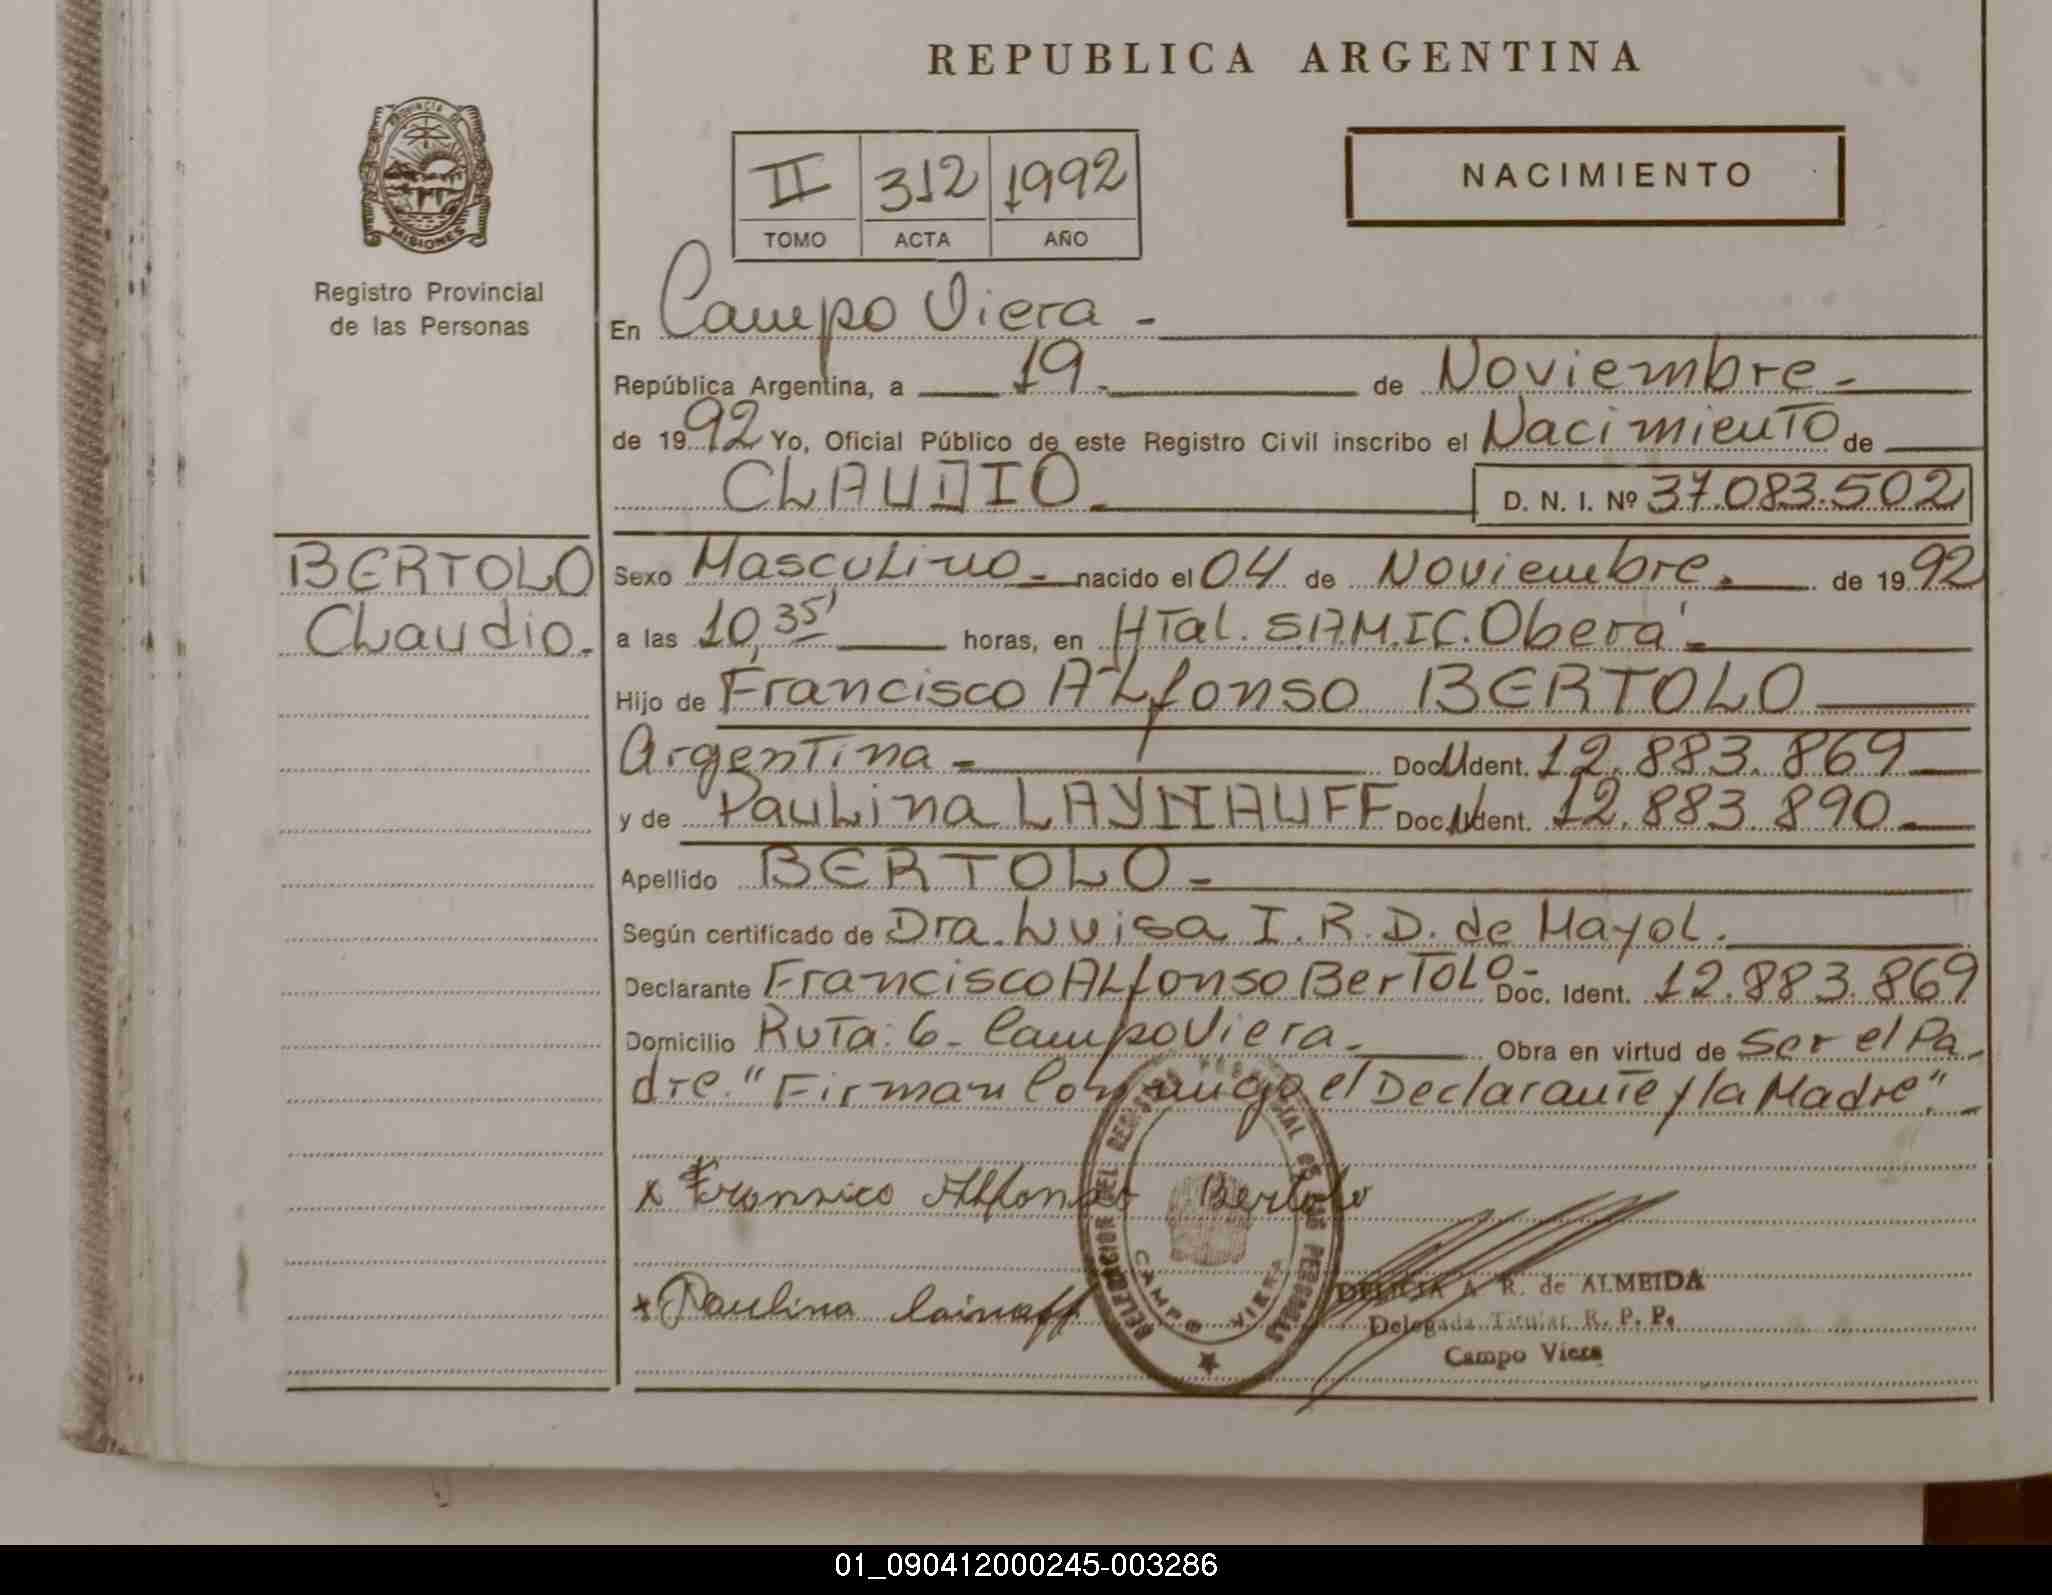 REPUBLICA ARGENTINA
PROVINCIA DE
MISIONES
Registro Provincial
de las Personas
II 312 1992
TOMO ACTA AÑO
NACIMIENTO
En Campo Viera -
República Argentina, a 19- de Noviembre-
de 1992 Yo, Oficial Público de este Registro Civil inscribo el Nacimiento de
CLAUDIO- D. N. I. Nº 37.083.502
BERTOLO
Claudio.-
Sexo Masculino- nacido el 04 de Noviembre.- de 1992
a las 10,35' horas, en HTal. S.A.M.I.C. Oberá-
Hijo de Francisco ALfonso BERTOLO
Argentina- Doc. Ident. 12.883.869
y de Paulina LAYNAUFF Doc. Ident. 12.883.890
Apellido BERTOLO-
Según certificado de Dra. Luisa I. R. D. de Mayol.
Declarante Francisco ALfonso BerToLo- Doc. Ident. 12.883.869
Domicilio Ruta: 6- Campo Viera.- Obra en virtud de Ser el Pa-
dre. "Firman Conmigo el Declarante y la Madre".-
x Fransico Alfonso Bertolo
x Paulina Lainaff
DELEGACION DEL REGISTRO PROVINCIAL DE LAS PERSONAS
CAMPO VIERA
DELICIA A. R. de ALMEIDA
Delegada Titular R. P. P.
Campo Viera
01_090412000245-003286